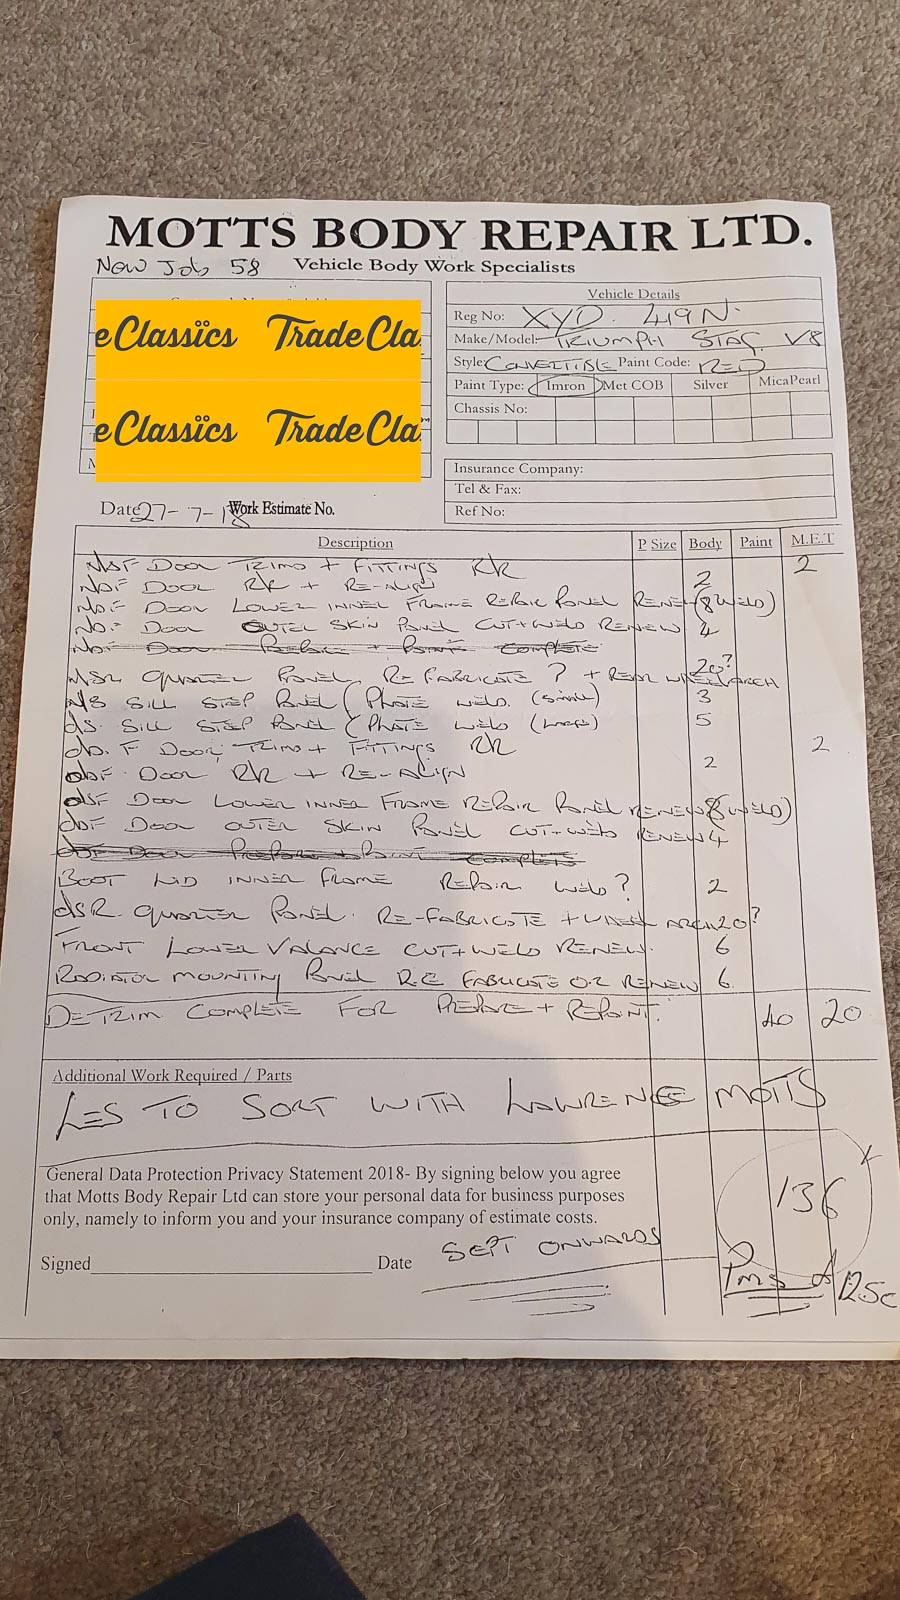 MOTTS BODY REPAIR LTD.
New Job 58 Vehicle Body Work Specialists
e Classics Trade Cla
e Classics Trade Cla
Vehicle Details
Reg No: XYD 419N.
Make/Model: TRIUMPH STAG V8
Style: CONVERTIBLE Paint Code: RED
Paint Type: Imron Met COB Silver MicaPearl
Chassis No:
Insurance Company:
Tel & Fax:
Ref No:
Date 27-7-18 Work Estimate No.
Description P Size Body Paint M.E.T
NSF DOOR TRIMS + FITTINGS RR 2
NSF DOOR RR + RE-ALIGN 2
NSF DOOR LOWER INNER FRAME REPAIR PANEL RENEW (8 WELD)
NSF DOOR OUTER SKIN PANEL CUT+WELD RENEW 4
NSF DOOR PREPARE + PAINT COMPLETE
NSR QUARTER PANEL RE FABRICATE ? + REAR WHEEL ARCH 20?
NS SILL STEP PANEL (PLATE WELD. (SMALL) 3
DS. SILL STEP PANEL (PLATE WELD (LARGE) 5
DS. F DOOR, TRIMS + FITTINGS RR 2
DSF DOOR RR + RE-ALIGN 2
DSF DOOR LOWER INNER FRAME REPAIR PANEL RENEW (8 WELD)
DSF DOOR OUTER SKIN PANEL CUT+WELD RENEW 4
DSF DOOR PREPARE + PAINT COMPLETE
BOOT LID INNER FRAME REPAIR WELD? 2
DSR. QUARTER PANEL. RE-FABRICATE + WHEEL ARCH 20?
FRONT LOWER VALANCE CUT+WELD RENEW. 6
RADIATOR MOUNTING PANEL RE FABRICATE OR RENEW 6
DETRIM COMPLETE FOR PREPARE + REPAINT. 40 20
Additional Work Required / Parts
LES TO SORT WITH LAWRENCE MOTTS
General Data Protection Privacy Statement 2018- By signing below you agree
that Motts Body Repair Ltd can store your personal data for business purposes
only, namely to inform you and your insurance company of estimate costs.
136
Signed Date SEPT ONWARDS